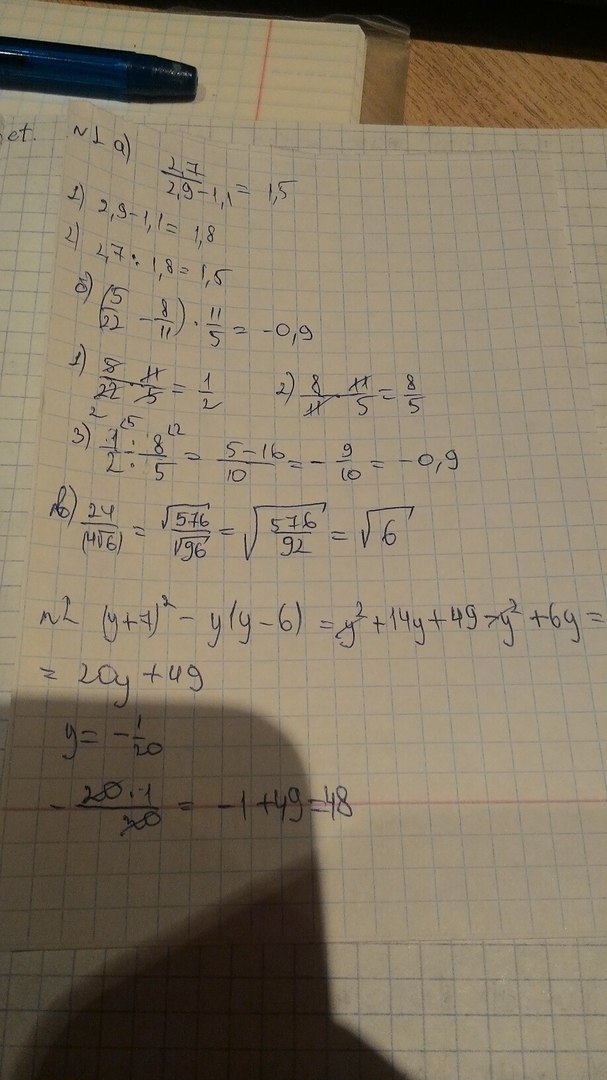 ct.
№1 а) 2,7/(2,9-1,1) = 1,5
1) 2,9-1,1 = 1,8
2) 2,7 : 1,8 = 1,5
б) (5/22 - 8/11) · 11/5 = -0,9
1) 5/22 · 11/5 = 1/2   2) 8/11 · 11/5 = 8/5
3) 1/2 - 8/5 = (5-16)/10 = -9/10 = -0,9
в) 24/(4√6) = √576/√96 = √(576/92) = √6
№2 (y+7)² - y(y-6) = y² + 14y + 49 - y² + 6y =
= 20y + 49
y = -1/20
- (20·1)/20 = -1 + 49 = 48